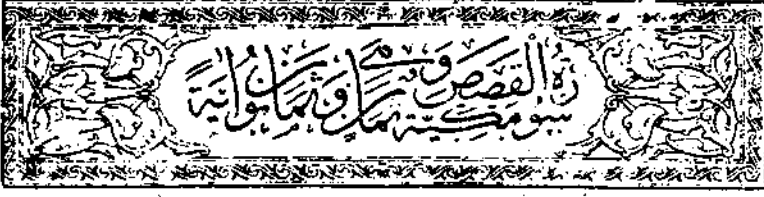 سُورَةُ الْقَصَصِ وَهِيَ مَكِّيَّةٌ ثَمَانٍ وَثَمَانُونَ آيَةً